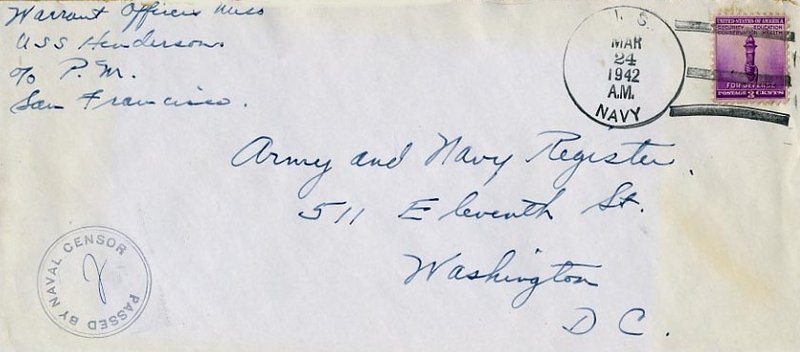 Warrant Officers Mess
USS Henderson
c/o P.M.
San Francisco.
U.S.
MAR
24
1942
A.M.
NAVY
UNITED STATES OF AMERICA
SECURITY EDUCATION
CONSERVATION HEALTH
FOR DEFENSE
POSTAGE 3 CENTS
Army and Navy Register
511 Eleventh St.
Washington
D C.
PASSED BY NAVAL CENSOR